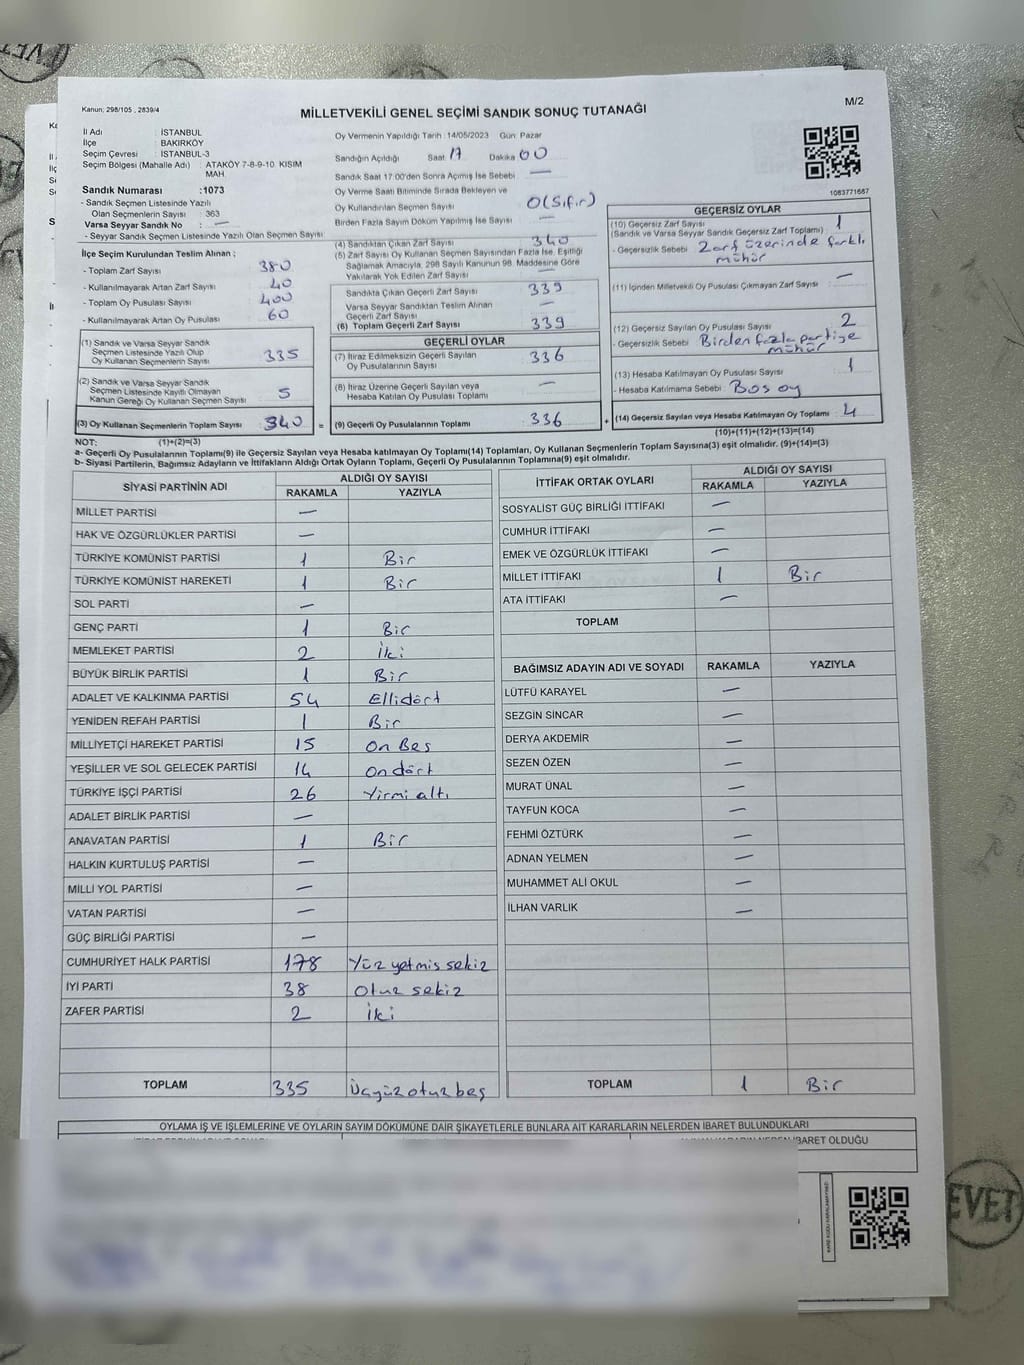 Kanun: 298/105 , 2839/4
MİLLETVEKİLİ GENEL SEÇİMİ SANDIK SONUÇ TUTANAĞI
M/2
İl Adı : İSTANBUL
İlçe : BAKIRKÖY
Seçim Çevresi : İSTANBUL-3
Seçim Bölgesi (Mahalle Adı) : ATAKÖY 7-8-9-10. KISIM
MAH.
Sandık Numarası :1073
- Sandık Seçmen Listesinde Yazılı
Olan Seçmenlerin Sayısı : 363
Varsa Seyyar Sandık No : —
- Seyyar Sandık Seçmen Listesinde Yazılı Olan Seçmen Sayısı
Oy Vermenin Yapıldığı Tarih : 14/05/2023 Gün: Pazar
Sandığın Açıldığı Saat 17 Dakika 00
Sandık Saat 17:00'den Sonra Açılmış İse Sebebi —
Oy Verme Saati Bitiminde Sırada Bekleyen ve
Oy Kullandırılan Seçmen Sayısı 0 (Sıfır)
Birden Fazla Sayım Döküm Yapılmış İse Sayısı —
1083771687
İlçe Seçim Kurulundan Teslim Alınan ;
- Toplam Zarf Sayısı 380
- Kullanılmayarak Artan Zarf Sayısı 40
- Toplam Oy Pusulası Sayısı 400
- Kullanılmayarak Artan Oy Pusulası 60
(1) Sandık ve Varsa Seyyar Sandık
Seçmen Listesinde Yazılı Olup
Oy Kullanan Seçmenlerin Sayısı 335
(2) Sandık ve Varsa Seyyar Sandık
Seçmen Listesinde Kayıtlı Olmayan
Kanun Gereği Oy Kullanan Seçmen Sayısı 5
(3) Oy Kullanan Seçmenlerin Toplam Sayısı 340 =
(4) Sandıktan Çıkan Zarf Sayısı 340
(5) Zarf Sayısı Oy Kullanan Seçmen Sayısından Fazla İse, Eşitliği
Sağlamak Amacıyla, 298 Sayılı Kanunun 98. Maddesine Göre
Yakılarak Yok Edilen Zarf Sayısı —
Sandıkta Çıkan Geçerli Zarf Sayısı 339
Varsa Seyyar Sandıktan Teslim Alınan
Geçerli Zarf Sayısı —
(6) Toplam Geçerli Zarf Sayısı 339
GEÇERLİ OYLAR
(7) İtiraz Edilmeksizin Geçerli Sayılan
Oy Pusulasının Sayısı 336
(8) İtiraz Üzerine Geçerli Sayılan veya
Hesaba Katılan Oy Pusulası Toplamı —
(9) Geçerli Oy Pusulalarının Toplamı 336 +
GEÇERSİZ OYLAR
(10) Geçersiz Zarf Sayısı 1
(Sandık ve Varsa Seyyar Sandık Geçersiz Zarf Toplamı)
- Geçersizlik Sebebi Zarf üzerinde farklı
mühür
(11) İçinden Milletvekili Oy Pusulası Çıkmayan Zarf Sayısı —
(12) Geçersiz Sayılan Oy Pusulası Sayısı 2
- Geçersizlik Sebebi Birden fazla partiye
mühür
(13) Hesaba Katılmayan Oy Pusulası Sayısı 1
- Hesaba Katılmama Sebebi Bos oy
(14) Geçersiz Sayılan veya Hesaba Katılmayan Oy Toplamı 4
(10)+(11)+(12)+(13)=(14)
NOT: (1)+(2)=(3)
a- Geçerli Oy Pusulalarının Toplamı(9) ile Geçersiz Sayılan veya Hesaba katılmayan Oy Toplamı(14) Toplamları, Oy Kullanan Seçmenlerin Toplam Sayısına(3) eşit olmalıdır. (9)+(14)=(3)
b- Siyasi Partilerin, Bağımsız Adayların ve İttifakların Aldığı Ortak Oyların Toplamı, Geçerli Oy Pusulalarının Toplamına(9) eşit olmalıdır.
SİYASİ PARTİNİN ADI ALDIĞI OY SAYISI
RAKAMLA YAZIYLA
MİLLET PARTİSİ —
HAK VE ÖZGÜRLÜKLER PARTİSİ —
TÜRKİYE KOMÜNİST PARTİSİ 1 Bir
TÜRKİYE KOMÜNİST HAREKETİ 1 Bir
SOL PARTİ —
GENÇ PARTİ 1 Bir
MEMLEKET PARTİSİ 2 İki
BÜYÜK BİRLİK PARTİSİ 1 Bir
ADALET VE KALKINMA PARTİSİ 54 Ellidört
YENİDEN REFAH PARTİSİ 1 Bir
MİLLİYETÇİ HAREKET PARTİSİ 15 On Beş
YEŞİLLER VE SOL GELECEK PARTİSİ 14 On dört
TÜRKİYE İŞÇİ PARTİSİ 26 Yirmi altı
ADALET BİRLİK PARTİSİ —
ANAVATAN PARTİSİ 1 Bir
HALKIN KURTULUŞ PARTİSİ —
MİLLİ YOL PARTİSİ —
VATAN PARTİSİ —
GÜÇ BİRLİĞİ PARTİSİ —
CUMHURİYET HALK PARTİSİ 178 Yüz yetmis sekiz
İYİ PARTİ 38 Otuz sekiz
ZAFER PARTİSİ 2 İki
TOPLAM 335 Üçyüzotuzbeş
İTTİFAK ORTAK OYLARI ALDIĞI OY SAYISI
RAKAMLA YAZIYLA
SOSYALİST GÜÇ BİRLİĞİ İTTİFAKI —
CUMHUR İTTİFAKI —
EMEK VE ÖZGÜRLÜK İTTİFAKI —
MİLLET İTTİFAKI 1 Bir
ATA İTTİFAKI —
TOPLAM
BAĞIMSIZ ADAYIN ADI VE SOYADI RAKAMLA YAZIYLA
LÜTFÜ KARAYEL —
SEZGİN SİNCAR —
DERYA AKDEMİR —
SEZEN ÖZEN —
MURAT ÜNAL —
TAYFUN KOCA —
FEHMİ ÖZTÜRK —
ADNAN YELMEN —
MUHAMMET ALİ OKUL —
İLHAN VARLIK —
TOPLAM 1 Bir
OYLAMA İŞ VE İŞLEMLERİNE VE OYLARIN SAYIM DÖKÜMÜNE DAİR ŞİKAYETLERLE BUNLARA AİT KARARLARIN NELERDEN İBARET BULUNDUKLARI
İBARET OLDUĞU
EVET